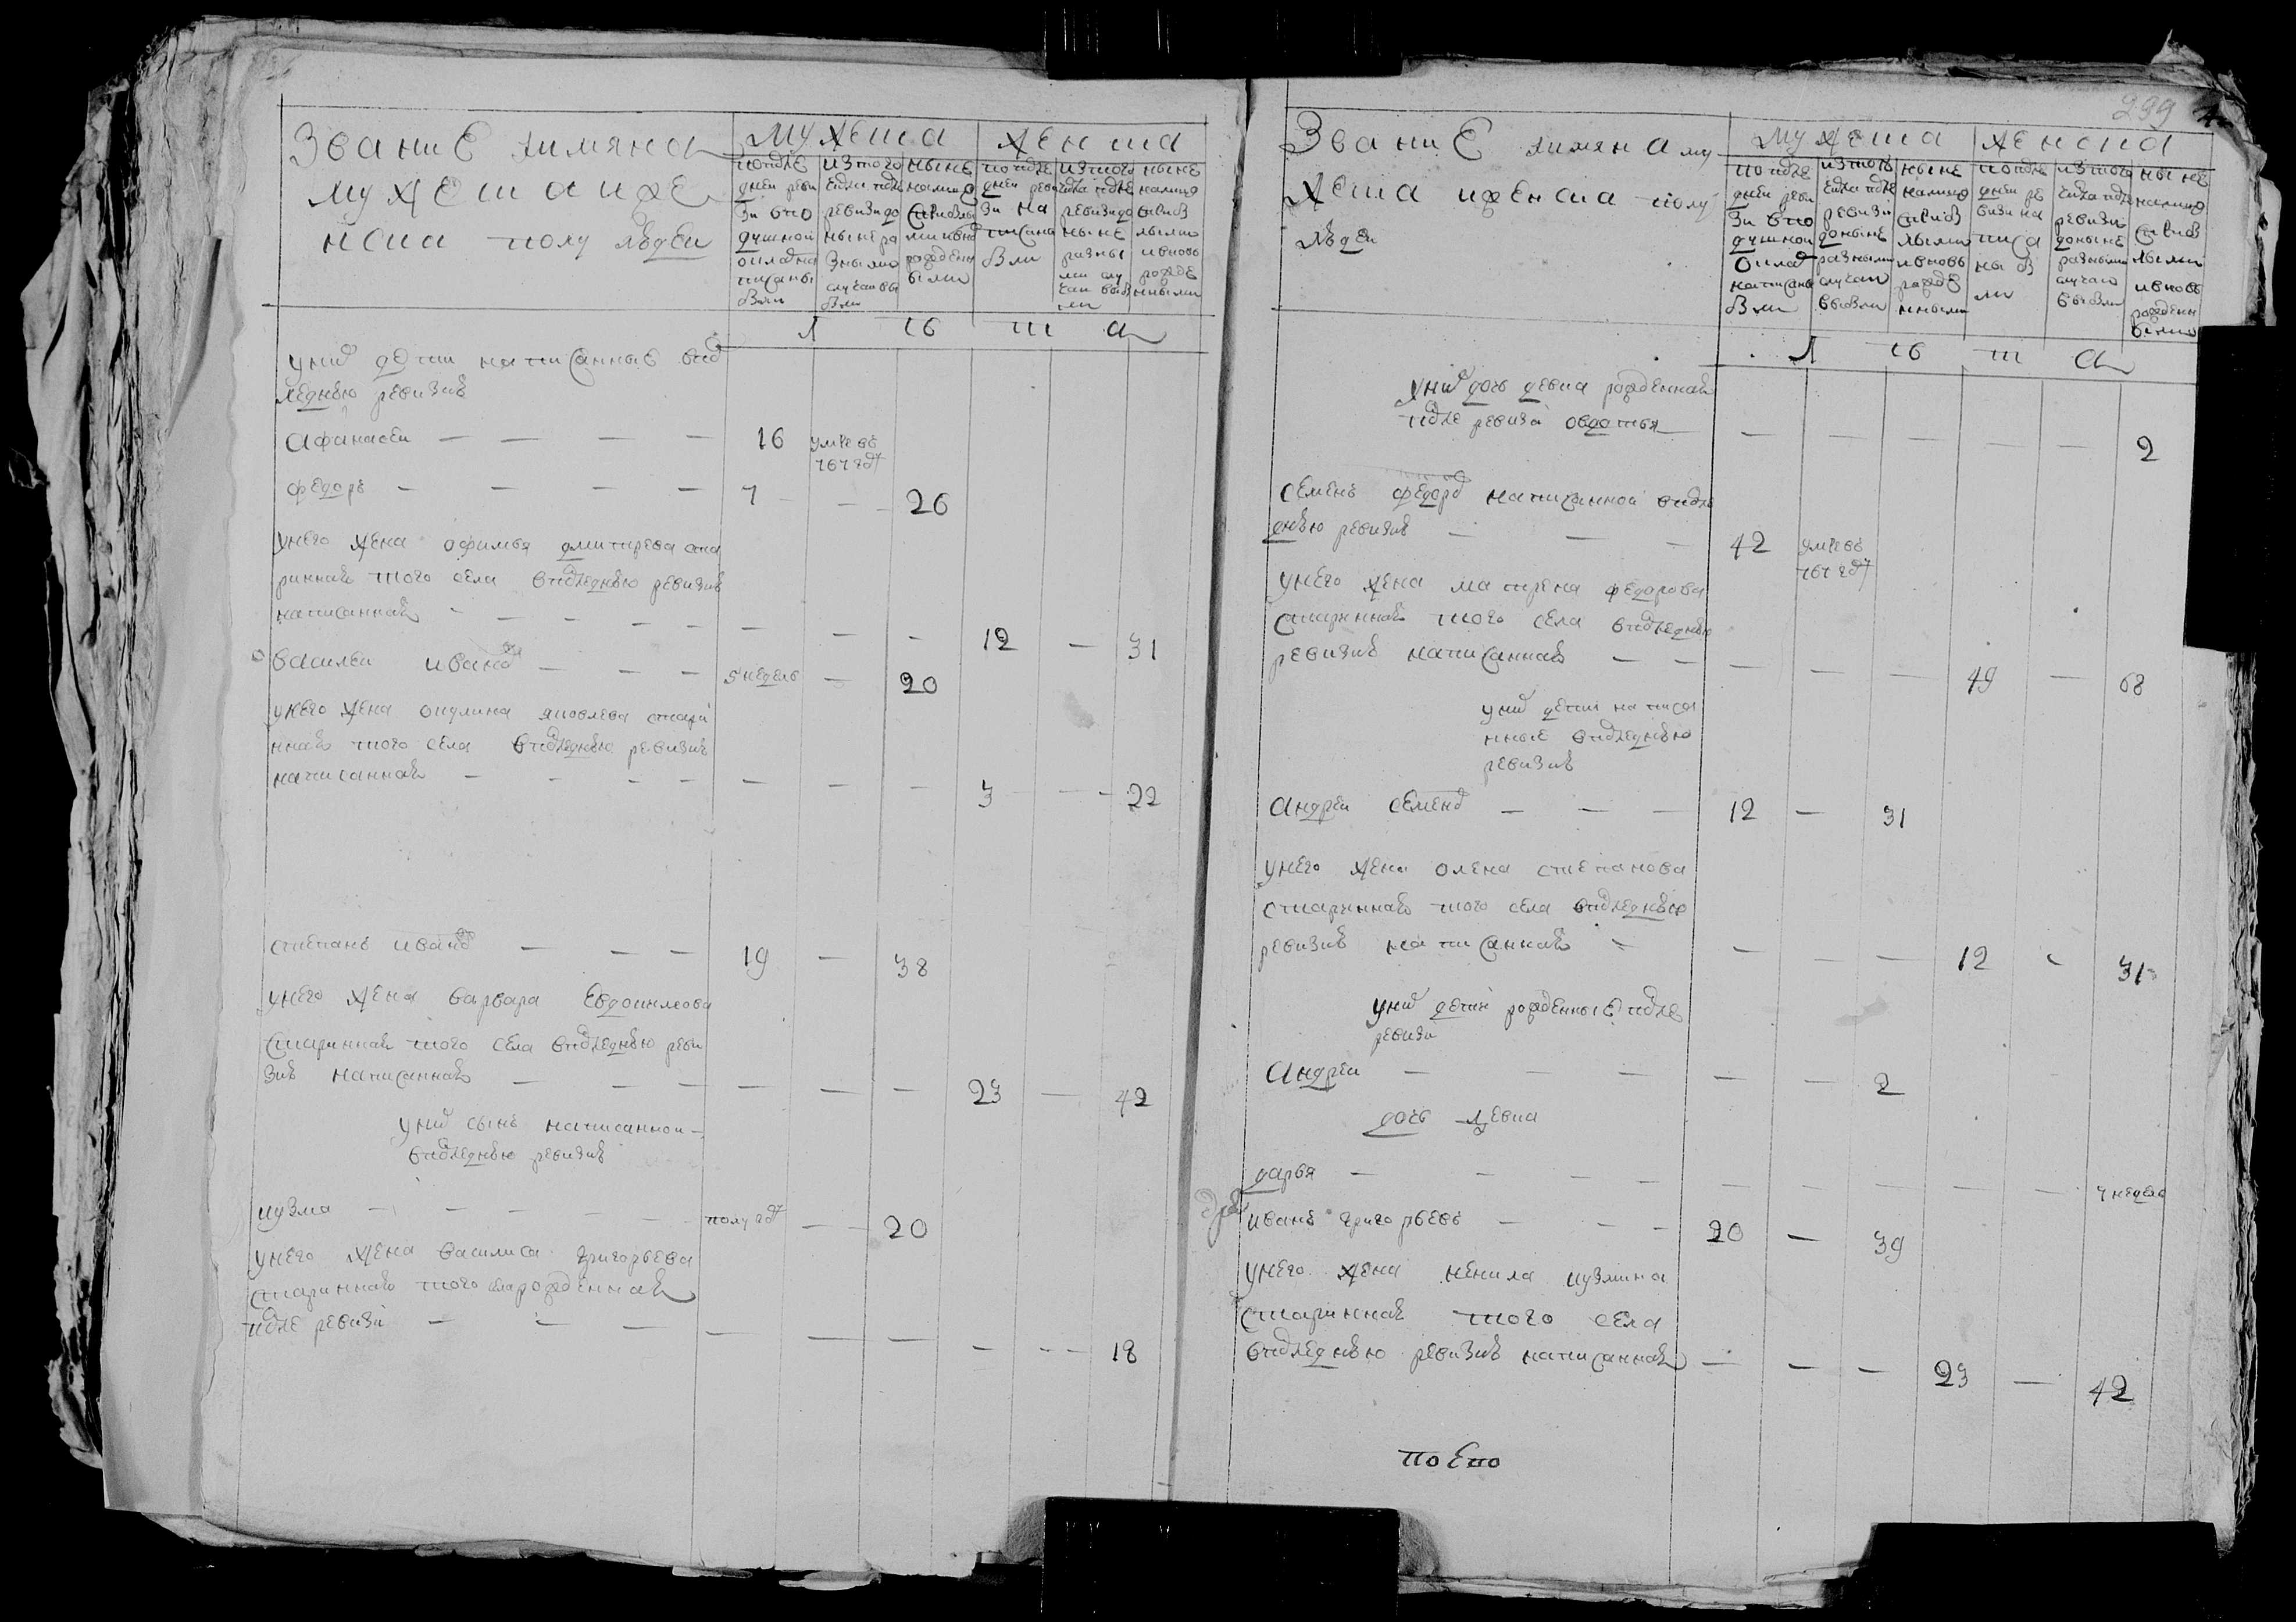 Звание химяна
мужеска иже
нска полу людеи
мужеска
женска
по после
днеи реви
зи в по
душной
оклад на
писаны
были
из того
числа после
ревизи до
ныне ра
зными
случаи вы
были
ныне
налицо
с прибылы
ми и вновь
рожден
ыми
по после
днеи реви
зи на
писано
были
из того
числа после
ревизи до
ныне
разны
ми слу
чаи выб
ли
ныне
налицо
с приб
лыми
и вновь
рожде
нными
л ѣ т а
у них дети написанные в пос
леднею ревизию
Афанасеи — — — — 16 умре въ
767 году
федоръ — — — — 7 — — 26
у него жена офимья дмитрева ста
ринная того села в последнею ревизию
написанная — — — — — — — — 12 — 31
василеи иванов — — — 5 недель — 20
у него жена окулина яковлева стари
нная того села в последнею ревизию
написанная — — — — — — — 3 — — 22
степанъ иванов — — — 19 — 38
у него жена варвара Евдокимова
старинная того села в последнею реви
зию написанная — — — — — — 23 — 42
у них сынъ написанной
в последнею ревизию
кузма — — — — — полугоду — — 20
у него жена василиса григорьева
старинная того села рожденная
после ревизи — — — — — — — — — 18
299
Звание химяна му
жеска и женска полу
людеи
мужеска
женска
по после
днеи реви
зи в по
душной
оклад
написаны
были
из того
числа после
ревизи
до ныне
разными
случаи
выбыли
ныне
налицо
с приб
лыми
и вновь
рожде
нными
по после
днеи ре
визи на
писа
ны б
ли
из того
числа после
ревизи
до ныне
разными
случаи
выбыли
ныне
налицо
с приб
лыми
и вновь
рожденн
ыми
л ѣ т а
у них дочь девка рожденная
после ревизи овдотья — — — — — — 2
семенъ федоров написанной в после
днею ревизию — — — 42 умре въ
767 году
у него жена матрена федорова
старинная того села в последнею
ревизию написанная — — — — — 49 — 68
у них дети написа
нные в последнею
ревизию
Андреи семенов — — — 12 — 31
у него жена олена степанова
старинная того села в последнею
ревизию написанная — — — — 12 — 31
у них дети рожденные после
ревизи
Андреи — — — — — 2
дочь девка
дарья — — — — — — — — — 7 недель
иванъ григорьевъ — — — 20 — 39
у него жена ненила кузмина
старинная того села
в последнею ревизию написанная — — — 23 — 42